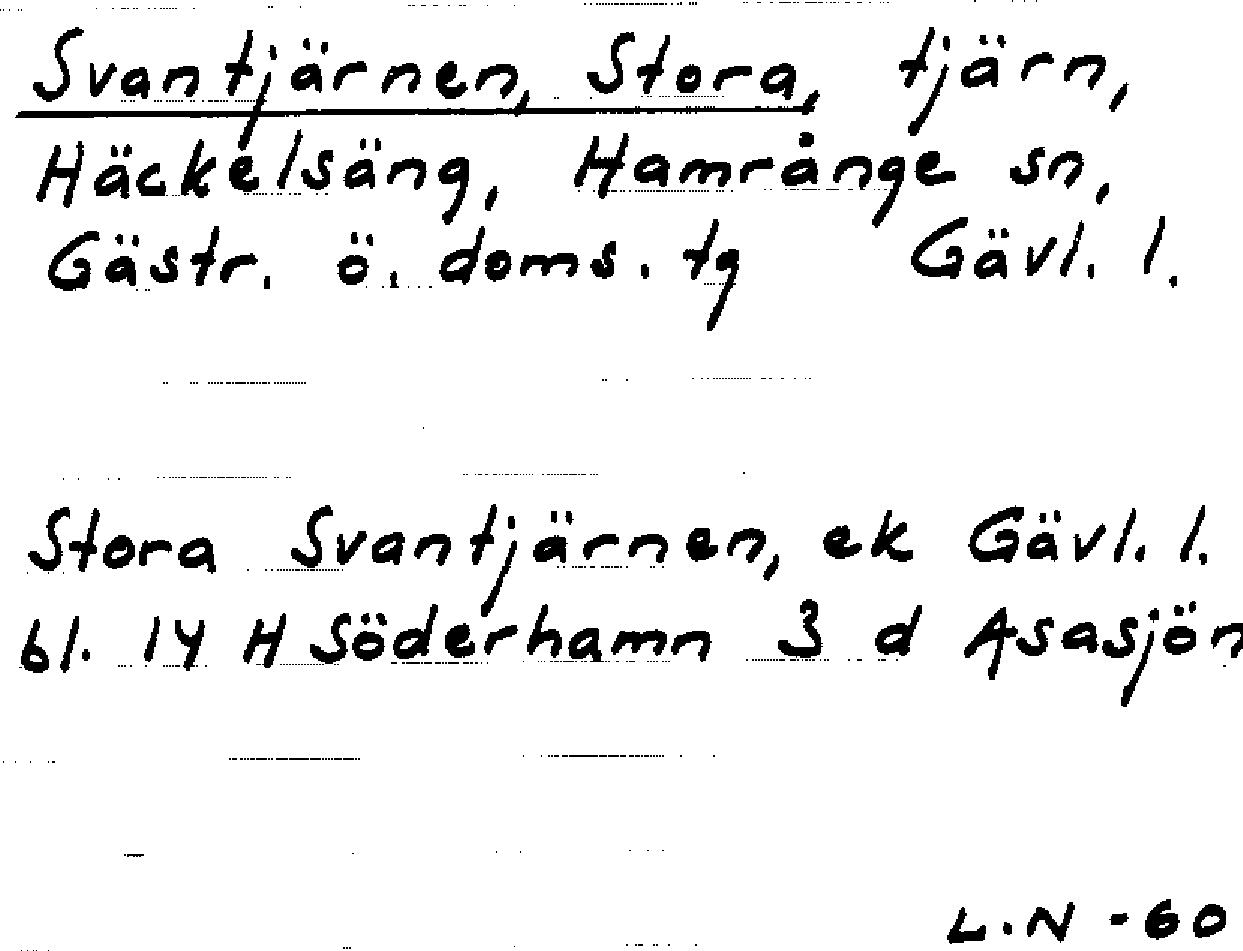 Svantjärnen, Stora, tjärn,
Häckelsäng, Hamrånge sn,
Gästr. ö. doms. tg Gävl. l.
Stora Svantjärnen, ek Gävl. l.
bl. 14 H Söderhamn 3 d Asasjön
L.N -60